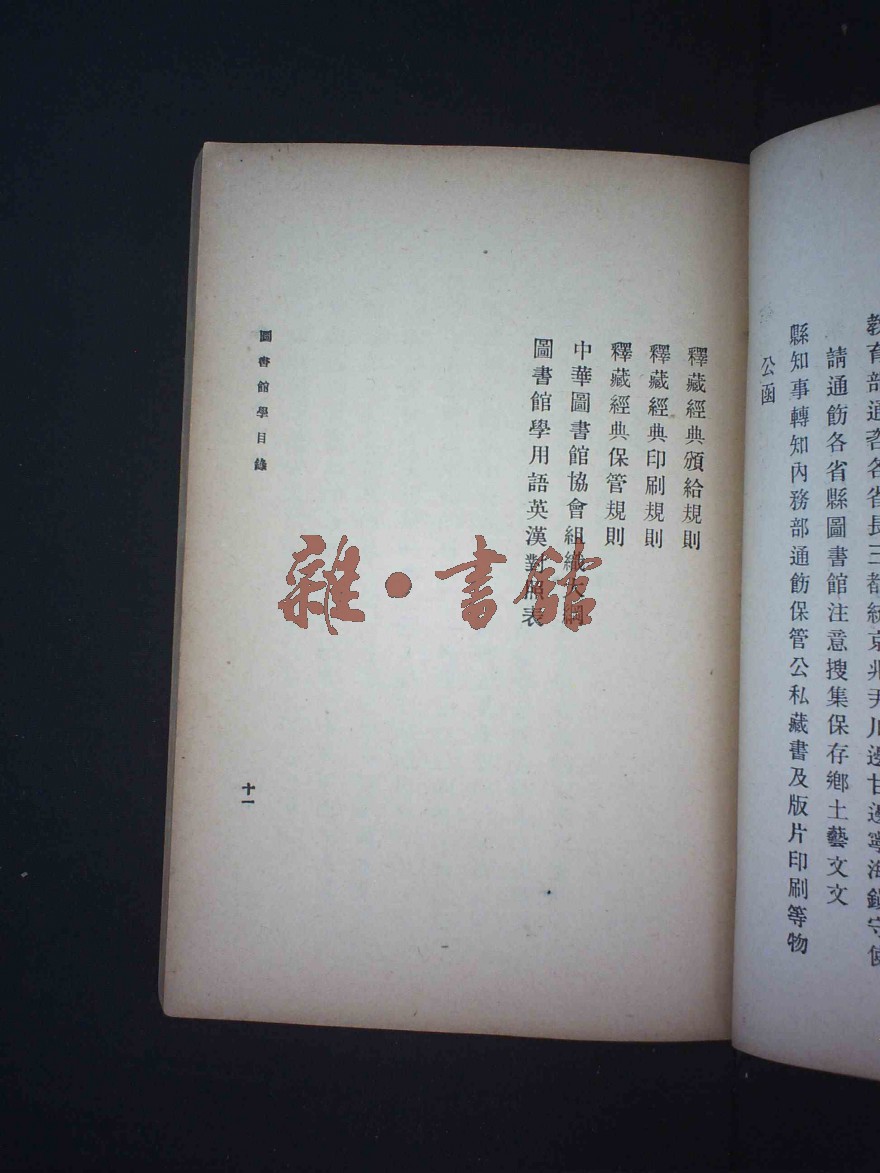 教育部通咨各省長三都統京兆尹川邊甘邊寧海鎮守使
請通飭各省縣圖書館注意搜集保存鄉土藝文文
縣知事轉知內務部通飭保管公私藏書及版片印刷等物
公函
釋藏經典頒給規則
釋藏經典印刷規則
釋藏經典保管規則
中華圖書館協會組織大綱
圖書館學用語英漢對照表
圖書館學目錄
十一
雜·書館